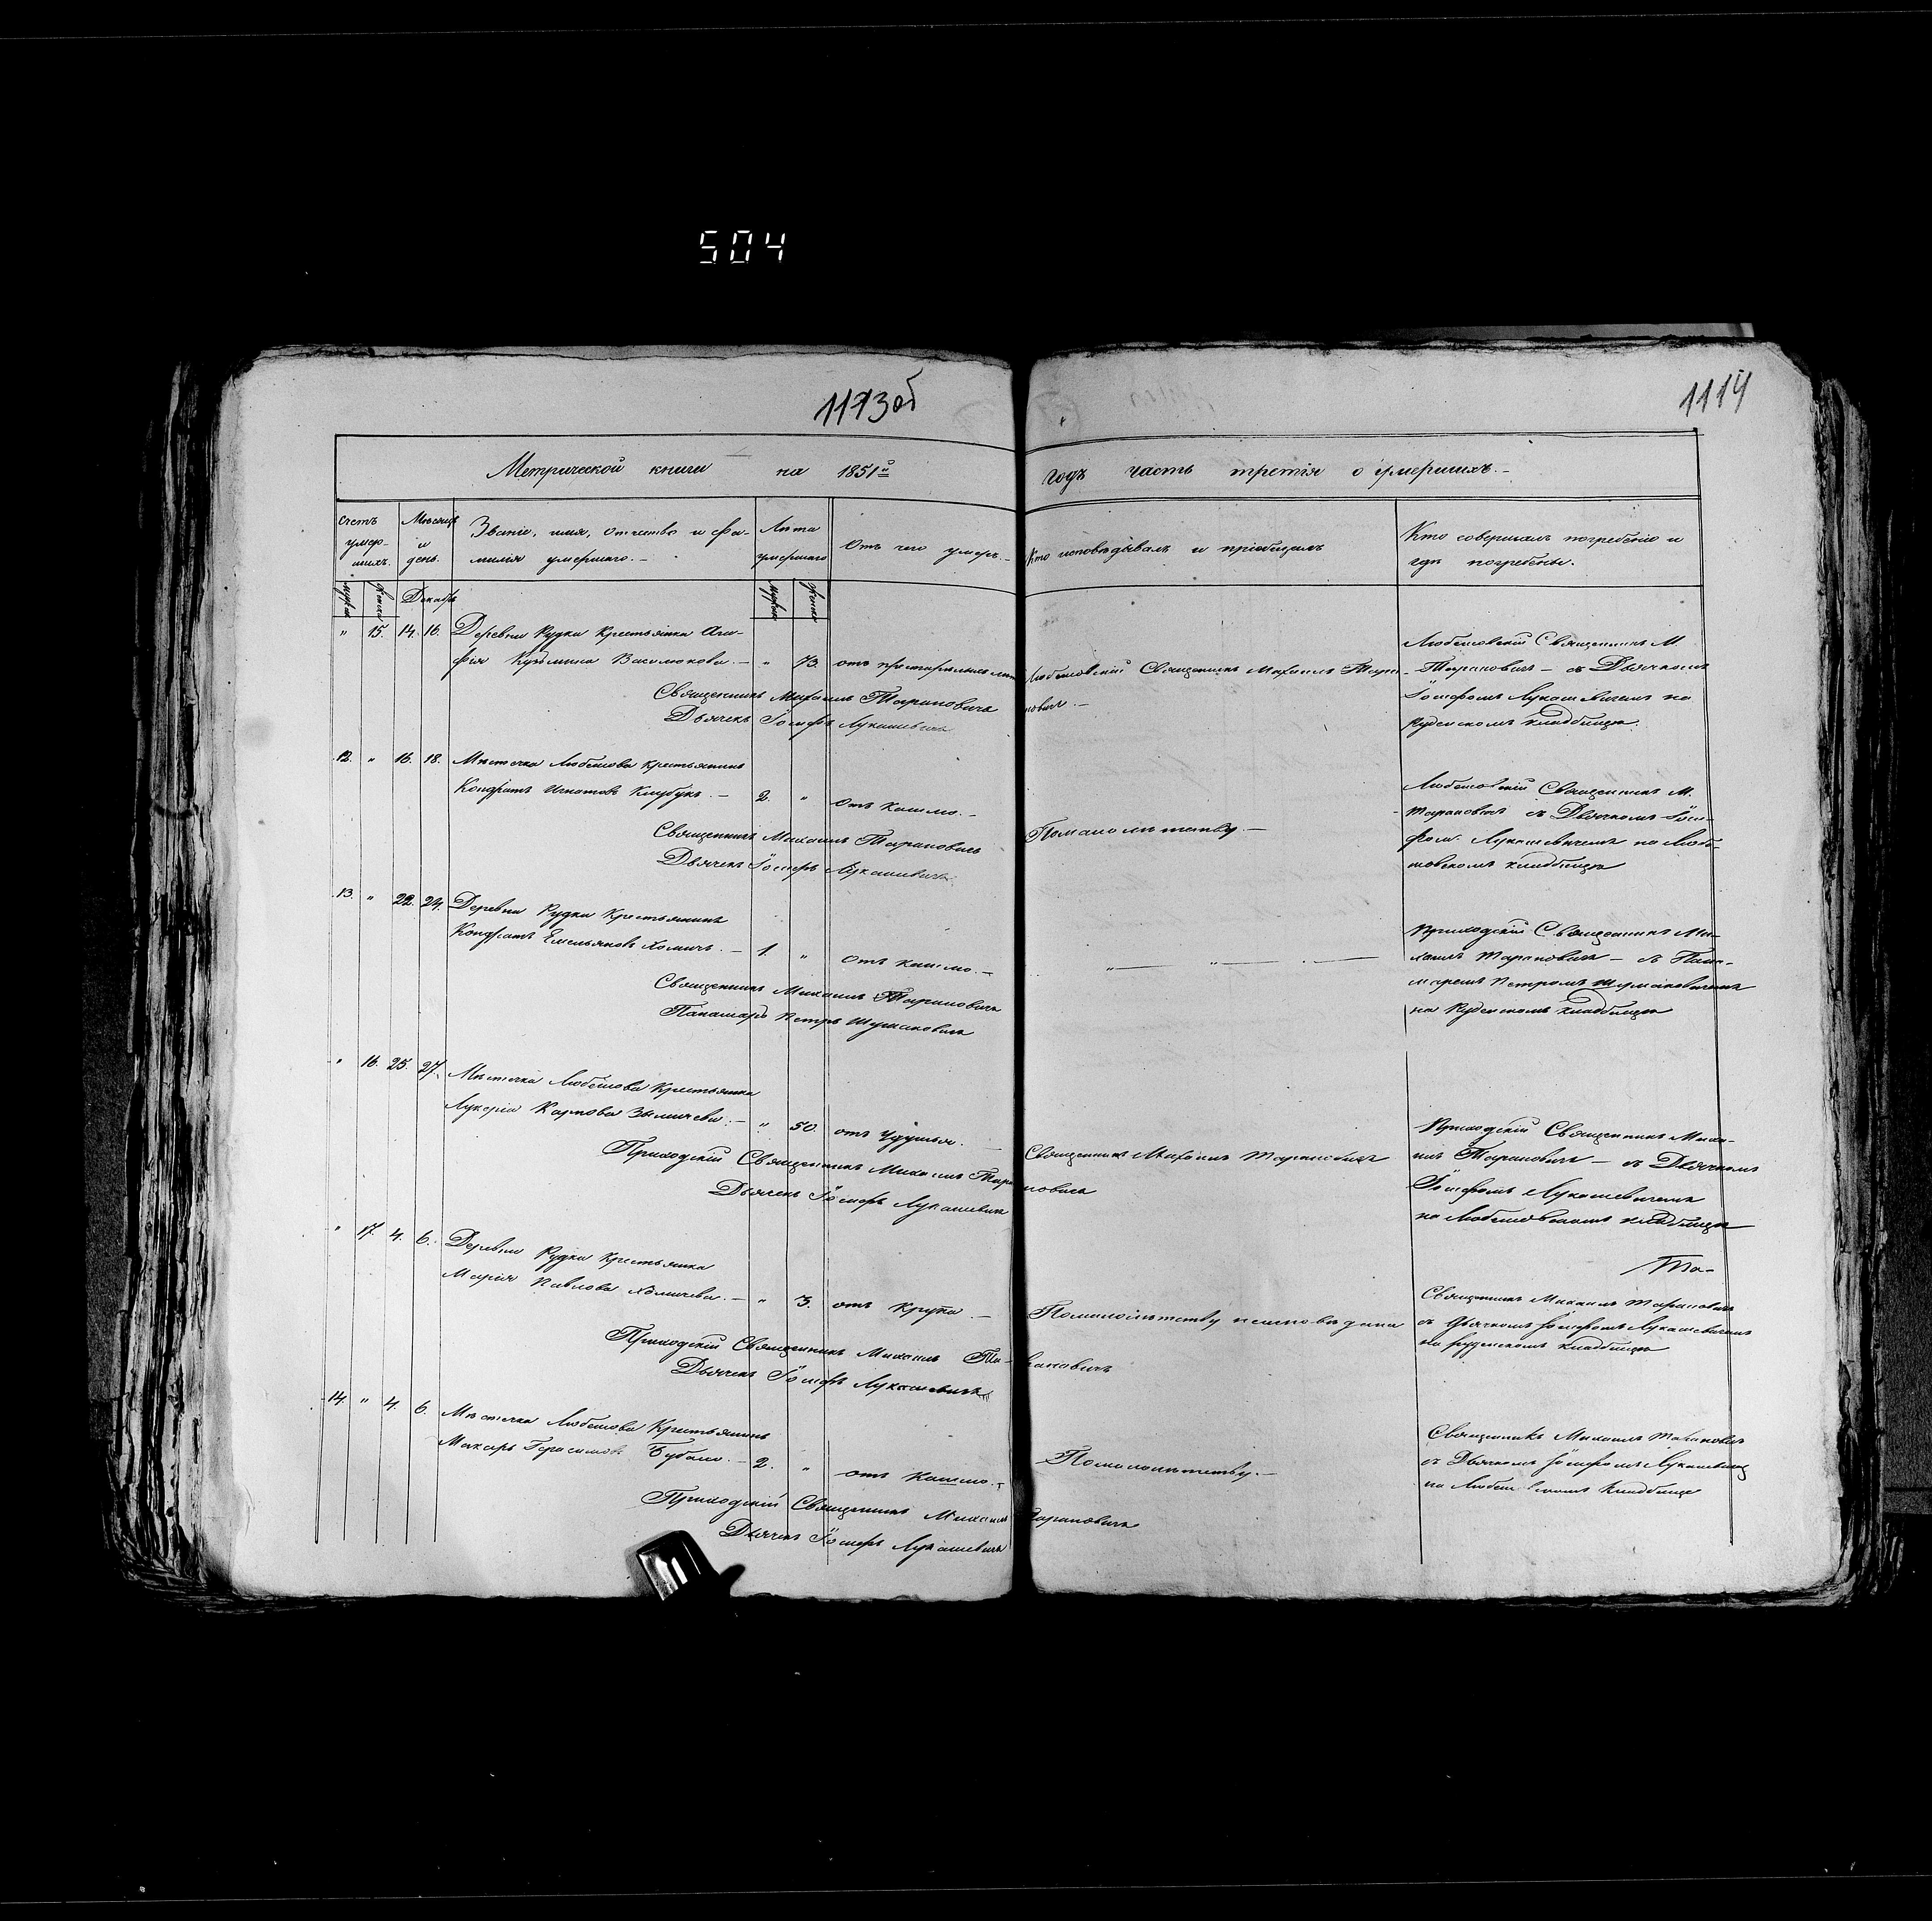 504
1113об
1114
Метрической книги на 1851й годъ часть третія о умершихъ.—
Счетъ умер-шихъ.
Мѣсяцъ и день.
Званіе, имя, отчество и фа-
милія умершаго.—
Лѣта умершаго
Отъ чего умеръ.—
Кто исповѣдывалъ и пріобщалъ
Кто совершалъ погребеніе и
гдѣ погребены.
муж. женск. Декабрь муж. женск.
" 15. 14. 16. Деревни Рудки Крестьянка Ага-
фія Кузьмина .— " 73. отъ престарѣлыхъ лѣтъ
Любешовскій Священникъ Михаилъ Тара-
новичъ.—
Любешовскій Священникъ М.
Тарановичъ — съ Дьячкомъ
Іосифомъ Лукашевичемъ на
Рудскомъ кладбищѣ.
Священникъ Михаилъ Тарановичъ
Дьячекъ Іосифъ Лукашевичъ
12. " 16. 18. Мѣстечка Любешова крестьянинъ
Кондратъ Игнатовъ .— 2. " отъ кашлю.—
Помалолѣтству.—
Любешовскій Священникъ М.
Тарановичъ съ Дьячкомъ Іоси-
фом. Лукашевичемъ на Любе-
шовскомъ кладбищѣ
Священникъ Михаилъ Тарановичъ
Дьячекъ Іосифъ Лукашевичъ.
13. " 22. 24. Деревни Рудки Крестьянинъ
Кондратъ Емельяновъ Хомичъ.— 1. " отъ кашлю.—
" — " — . —
Приходскій Священникъ Ми-
хаилъ Тарановичъ — съ Пана-
маремъ Петромъ Шумановичемъ
на Рудскомъ кладбищѣ
Священникъ Михаилъ Тарановичъ
Панамарь Петръ Шумановичъ
" 16. 25. 27. Мѣстечка Любешова Крестьянка
Лукерія Карпова .— " 50. отъ удушья.
Священникъ Михаилъ Тарановичъ
Приходскій Священникъ Миха-
илъ Тарановичъ — съ Дьячкомъ
Іосифомъ Лукашевичемъ
на Любешовскомъ кладбищѣ
Приходскій Священникъ Михаилъ Тарановичъ
Дьячекъ Іосифъ Лукашевичъ
" 17. 4. 6. Деревни Рудки Крестьянка
Марія Павлова Хомичева.— " 3. отъ крупа —
Помалолѣтству
Та-
Священникъ Михаилъ Тарановичъ
съ Дьячкомъ Іосифомъ Лукашевичемъ
на Рудскомъ кладбищѣ
Приходскій Священникъ Михаилъ Та-рановичъ
Дьячекъ Іосифъ Лукашевичъ
14. " 4. 6. Мѣстечка Любешова Крестьянинъ
Макаръ Герасимовъ .— 2. " отъ кашлю.—
Помалолѣтству.—
Священникъ Михаилъ Тарановичъ
съ Дьячкомъ Іосифомъ Лукашевичемъ
на Любешовскомъ кладбище
Приходскій Священникъ Михаилъ Тарановичъ
Дьячекъ Іосифъ Лукашевичъ